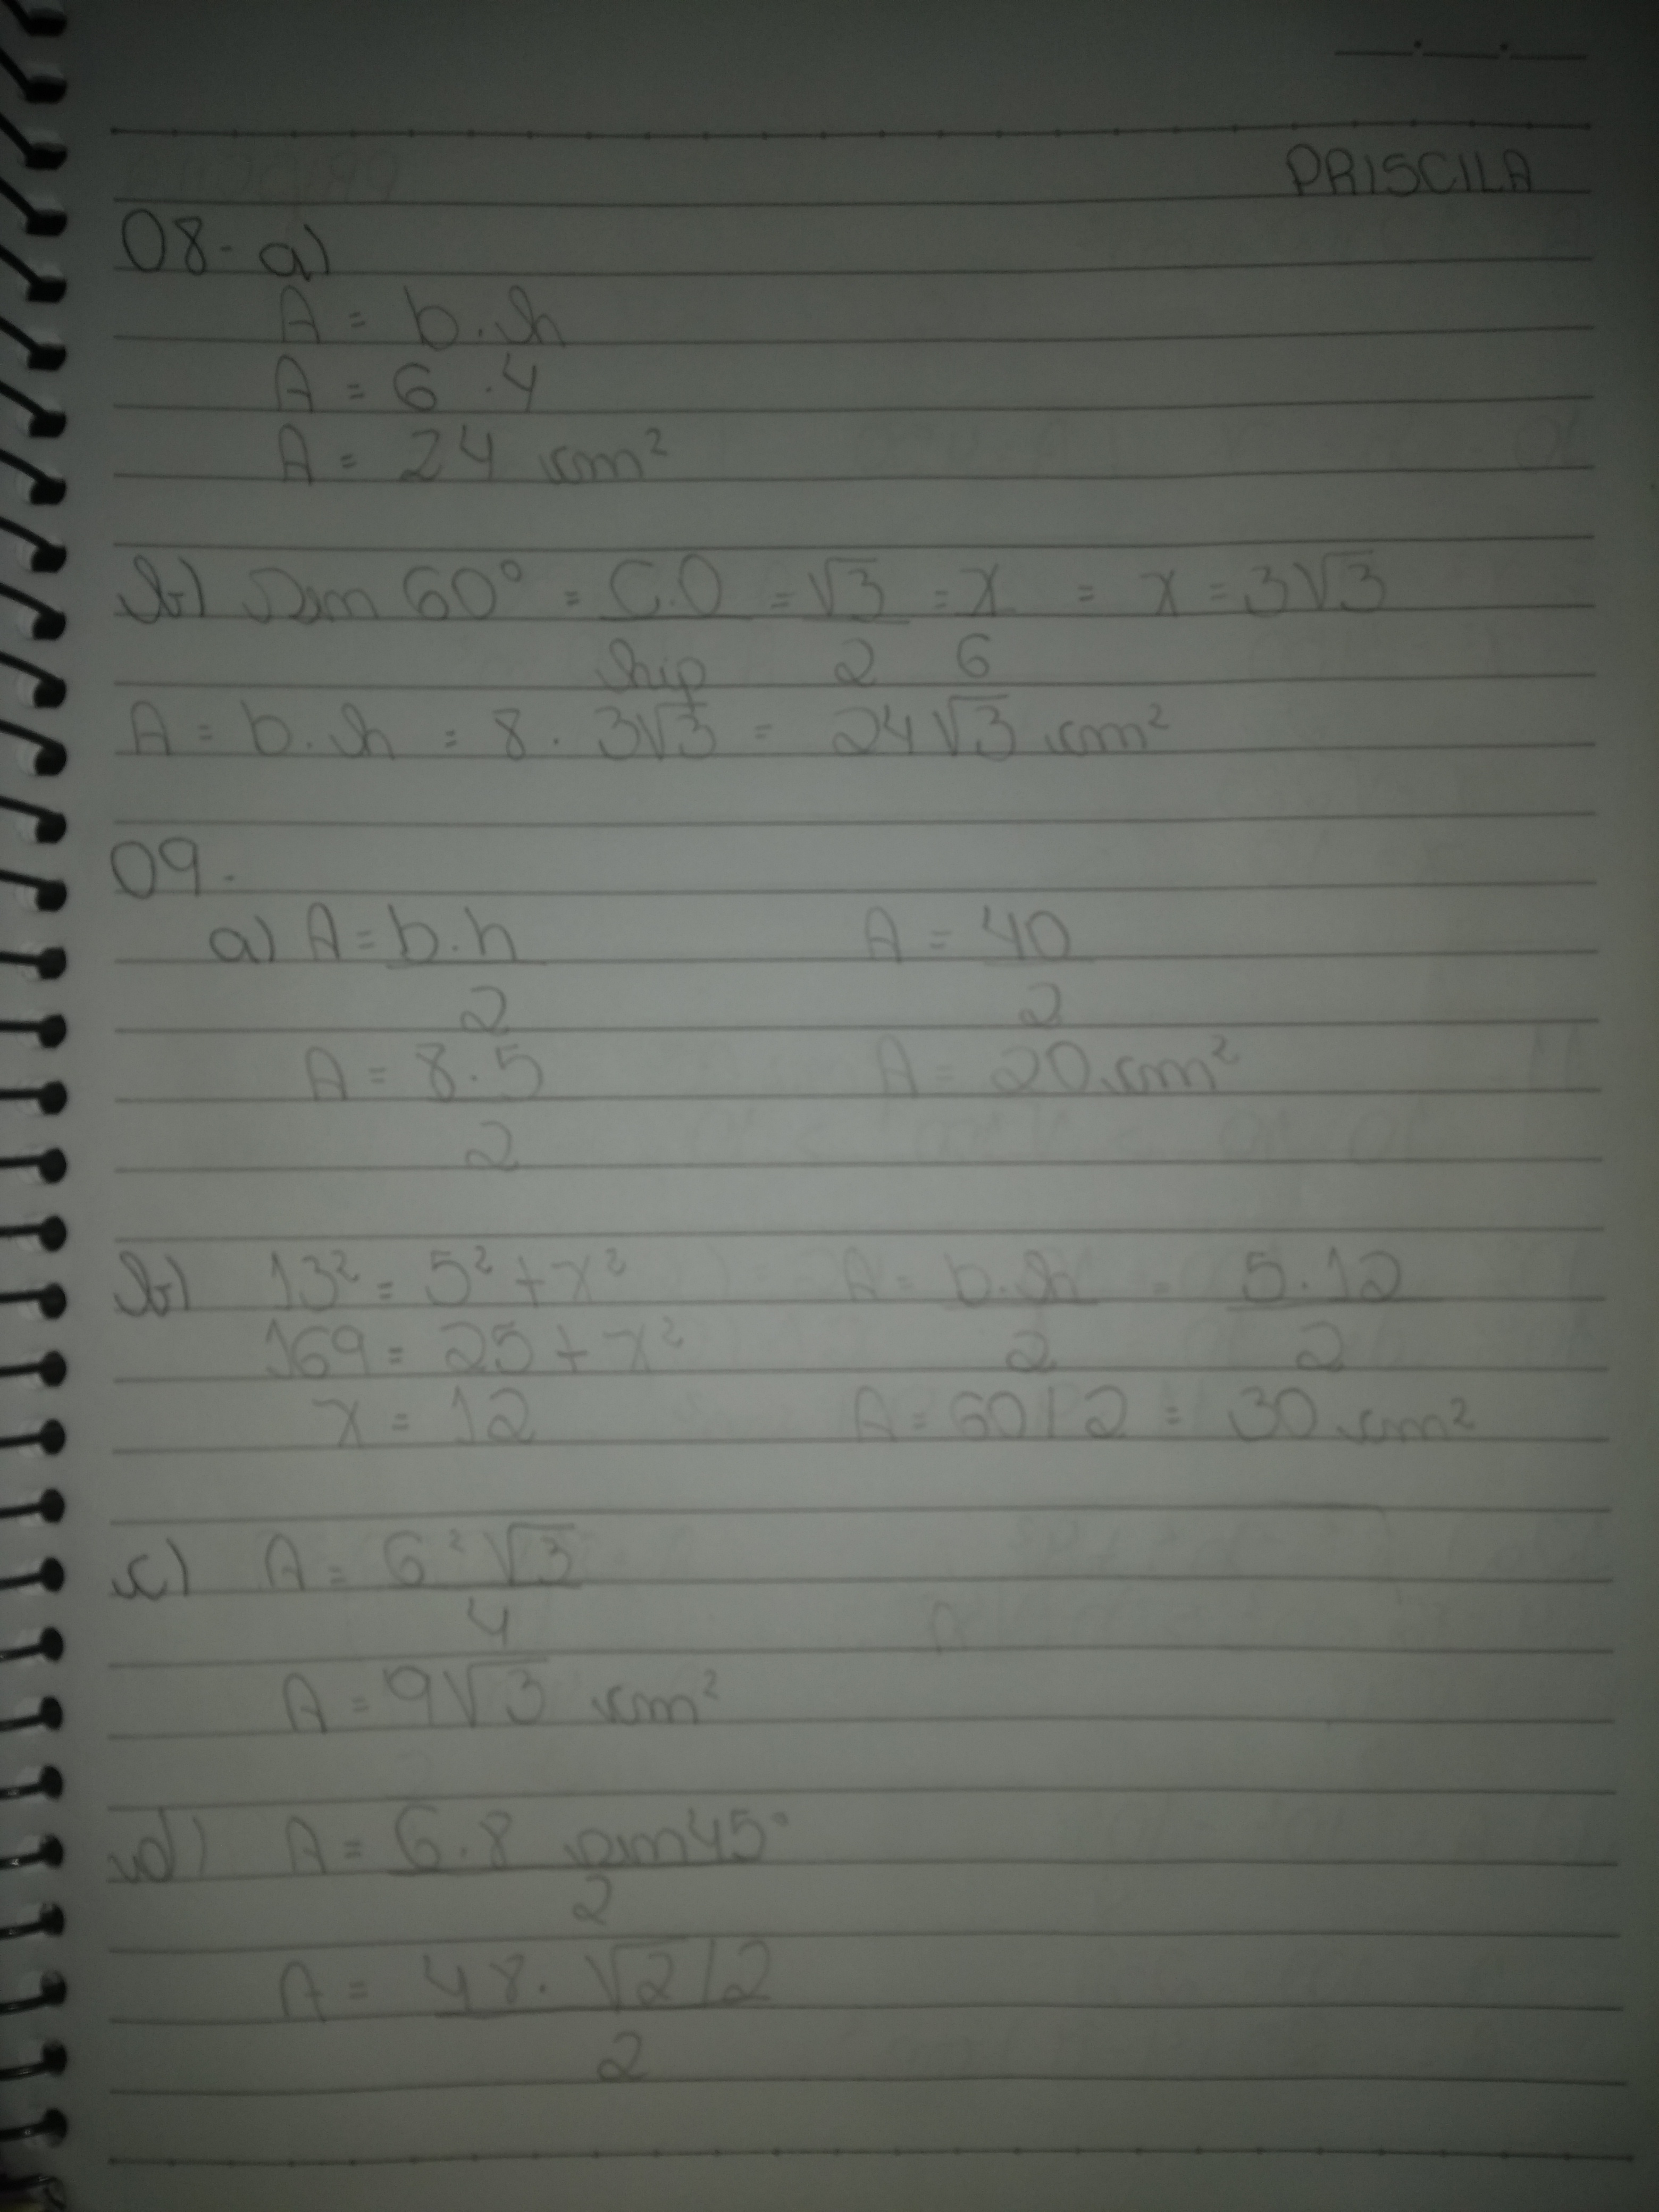 PRISCILA
08- a)
A = b.h
A = 6 .4
A = 24 cm²
b) Sen 60° = C.O = √3 = x = x = 3√3
hip 2 6
A = b.h = 8 . 3√3 = 24√3 cm²
09-
a) A = b.h A = 40
2 2
A = 8.5 A = 20 cm²
2
b) 13² = 5² + x² A = b.h = 5.12
169 = 25 + x² 2 2
x = 12 A = 60/2 = 30 cm²
c) A = 6²√3
4
A = 9√3 cm²
d) A = 6.8 sen45°
2
A = 48.√2/2
2